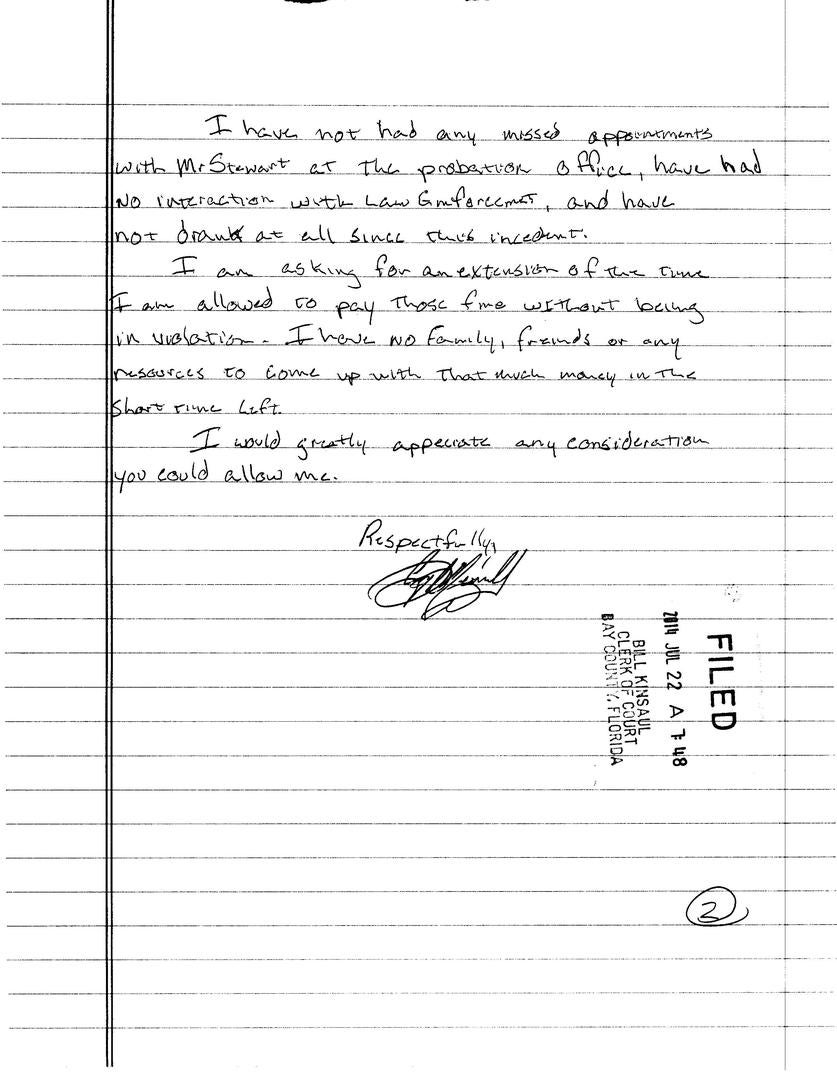 I have not had any missed appointments
with Mr Stewart at the probation office, have had
No interaction with Law Emforcemet, and have
not drank at all since this incedent.
I am asking for an extension of the time
I am allowed to pay those fine without being
in violation. I have no family, friends or any
resources to come up with that much money in the
short time left.
I would greatly appeciate any consideration
you could allow me.
Respectfully,
FILED
2014 JUL 22 A 7:48
BILL KINSAUL
CLERK OF COURT
BAY COUNTY, FLORIDA
2